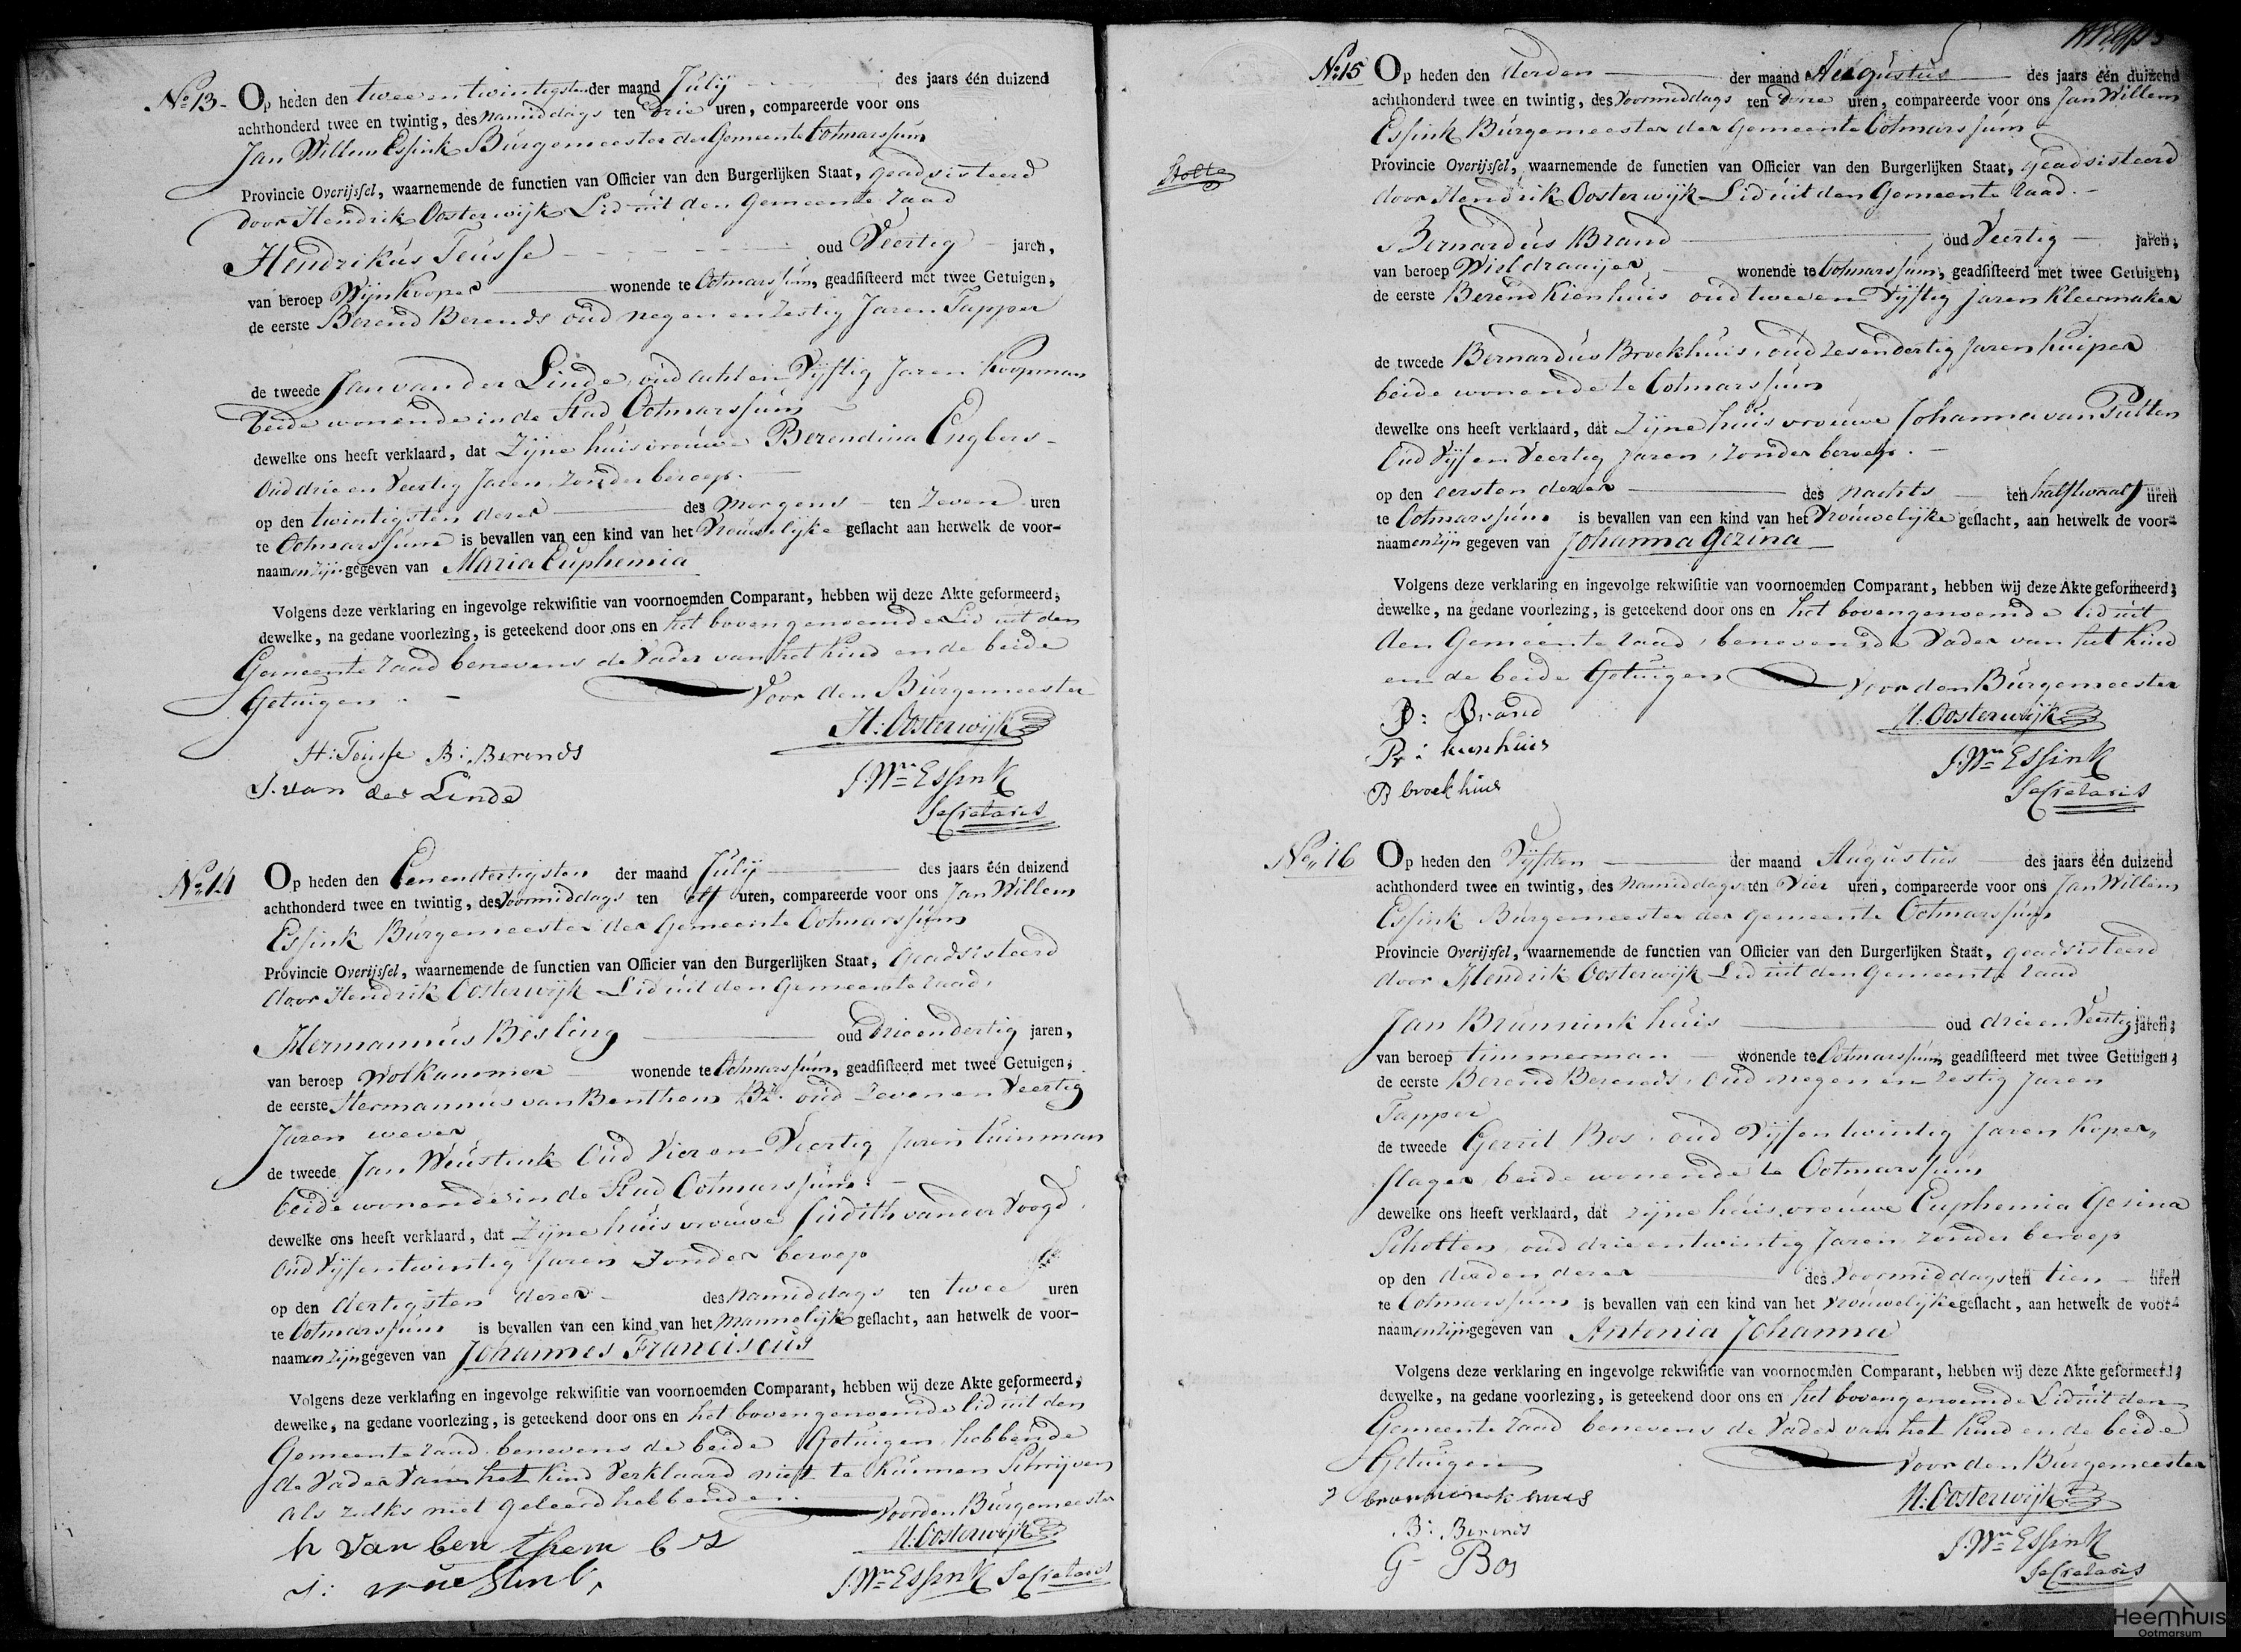 No 13 - Op heden den twee en twintigsten der maand Julij des jaars één duizend
achthonderd twee en twintig, des namiddags ten drie uren, compareerde voor ons
Jan Willem Essink Burgemeester der Gemeente Ootmarssum
Provincie Overijssel, waarnemende de functien van Officier van den Burgerlijken Staat, geadsisteerd
door Hendrik Oosterwijk Lid uit den Gemeente raad
Hendrikus Teusse oud Veertig jaren,
van beroep Wijnkooper wonende te Ootmarssum, geadsisteerd met twee Getuigen,
de eerste Berend Berends oud negen en zestig Jaren Tapper
de tweede Jan van der Linde, oud acht en Vijftig Jaren Koopman
beide wonende in de Stad Ootmarssum
dewelke ons heeft verklaard, dat Zijne huisvrouwe Berendina Engbers
Oud drie en Veertig Jaren, zonder beroep.
op den twintigsten dezer des morgens ten zeven uren
te Ootmarssum is bevallen van een kind van het Vrouwelijke geslacht aan hetwelk de voor-
naamen zijn gegeven van Maria Euphemia
Volgens deze verklaring en ingevolge rekwisitie van voornoemden Comparant, hebben wij deze Akte geformeerd,
dewelke, na gedane voorlezing, is geteekend door ons en het bovengenoemde Lid uit den
Gemeente raad benevens de Vader van het Kind en de beide
Getuigen.
Voor den Burgemeester
H: Oosterwijk
H: Teusse B: Berends
J. van der Linde
J. Wm Essink
Secretaris
No 14 Op heden den Eenendertigsten der maand Julij des jaars één duizend
achthonderd twee en twintig, des Voormiddags ten elf uren, compareerde voor ons Jan Willem
Essink Burgemeester der Gemeente Ootmarssum
Provincie Overijssel, waarnemende de functien van Officier van den Burgerlijken Staat, geadsisteerd
door Hendrik Oosterwijk Lid uit den Gemeente raad,
Hermannus Bösling oud drieendertig jaren,
van beroep Wolkammer wonende te Ootmarssum, geadsisteerd met twee Getuigen,
de eerste Hermannus van Benthem Bz. oud zeven en Veertig
Jaren wever
de tweede Jan Weustink Oud Vier en Veertig Jaren tuinman
beide wonende in de Stad Ootmarssum.
dewelke ons heeft verklaard, dat Zijne huisvrouwe Judith van der Voogd,
Oud Vijfentwintig Jaren zonder beroep
op den dertigsten dezer des namiddags ten twee uren
te Ootmarssum is bevallen van een kind van het Mannelijk geslacht, aan hetwelk de voor-
naamen zijn gegeven van Johannes Franciscus
Volgens deze verklaring en ingevolge rekwisitie van voornoemden Comparant, hebben wij deze Akte geformeerd,
dewelke, na gedane voorlezing, is geteekend door ons en het bovengenoemde lid uit den
Gemeente raad benevens de beide Getuigen, hebbende
de Vader van het Kind Verklaard niet te Kunnen Schrijven
als zulks niet geleerd hebbende.
Voor den Burgemeester
H: Oosterwijk
h van ben them b z
J. Wm Essink Secretaris
Stolte
No 15 Op heden den derden der maand Augustus des jaars één duizend
achthonderd twee en twintig, des Voormiddags ten drie uren, compareerde voor ons Jan Willem
Essink Burgemeester der Gemeente Ootmarssum
Provincie Overijssel, waarnemende de functien van Officier van den Burgerlijken Staat, geadsisteerd
door Hendrik Oosterwijk Lid uit den Gemeente raad.
Bernardus Brand oud Veertig jaren,
van beroep Wieldraaijer wonende te Ootmarssum, geadsisteerd met twee Getuigen,
de eerste Berend Kienhuis oud twee en Vijftig jaren kleermaker
de tweede Bernardus Broekhuis, oud zesendertig Jaren kuiper
beide wonende te Ootmarssum
dewelke ons heeft verklaard, dat Zijne huisvrouwe Johanna van Putten
Oud Vijf en Veertig Jaren, zonder beroep.
op den eersten dezer des nachts ten half twaalf uren
te Ootmarssum is bevallen van een kind van het Vrouwelijke geslacht, aan hetwelk de voor-
naamen zijn gegeven van Johanna Gezina
Volgens deze verklaring en ingevolge rekwisitie van voornoemden Comparant, hebben wij deze Akte geformeerd,
dewelke, na gedane voorlezing, is geteekend door ons en het bovengenoemde lid uit
den Gemeente raad, benevens de Vader van het Kind
en de beide Getuigen
Voor den Burgemeester
B: Brand
H: Oosterwijk
kienhuis
B broekhuis
J. Wm Essink
Secretaris
No 16 Op heden den Vijfden der maand Augustus des jaars één duizend
achthonderd twee en twintig, des Namiddags ten Vier uren, compareerde voor ons Jan Willem
Essink Burgemeester der gemeente Ootmarssum
Provincie Overijssel, waarnemende de functien van Officier van den Burgerlijken Staat, geadsisteerd
door Hendrik Oosterwijk Lid uit den Gemeente raad
Jan Brunnink huis oud drie en Veertig jaren,
van beroep timmerman wonende te Ootmarssum, geadsisteerd met twee Getuigen,
de eerste Berend Berends, Oud negen en zestig Jaren
Tapper
de tweede Gerrit Bos, oud Vijfentwintig Jaren Koper„
slager beide wonende te Ootmarssum
dewelke ons heeft verklaard, dat zijne huisvrouwe Euphemia Gesina
Scholten, oud drieentwintig Jaren zonder beroep
op den derden dezer des Voormiddags ten tien uren
te Ootmarssum is bevallen van een kind van het Vrouwelijke geslacht, aan hetwelk de voor-
naamen zijn gegeven van Antonia Johanna
Volgens deze verklaring en ingevolge rekwisitie van voornoemden Comparant, hebben wij deze Akte geformeerd,
dewelke, na gedane voorlezing, is geteekend door ons en het bovengenoemde Lid uit den
Gemeente raad benevens de Vader van het Kind en de beide
Getuigen
Voor den Burgemeester
H: Oosterwijk
B: Berends
G Bos
J. Wm Essink
Secretaris
Heemhuis
Ootmarsum